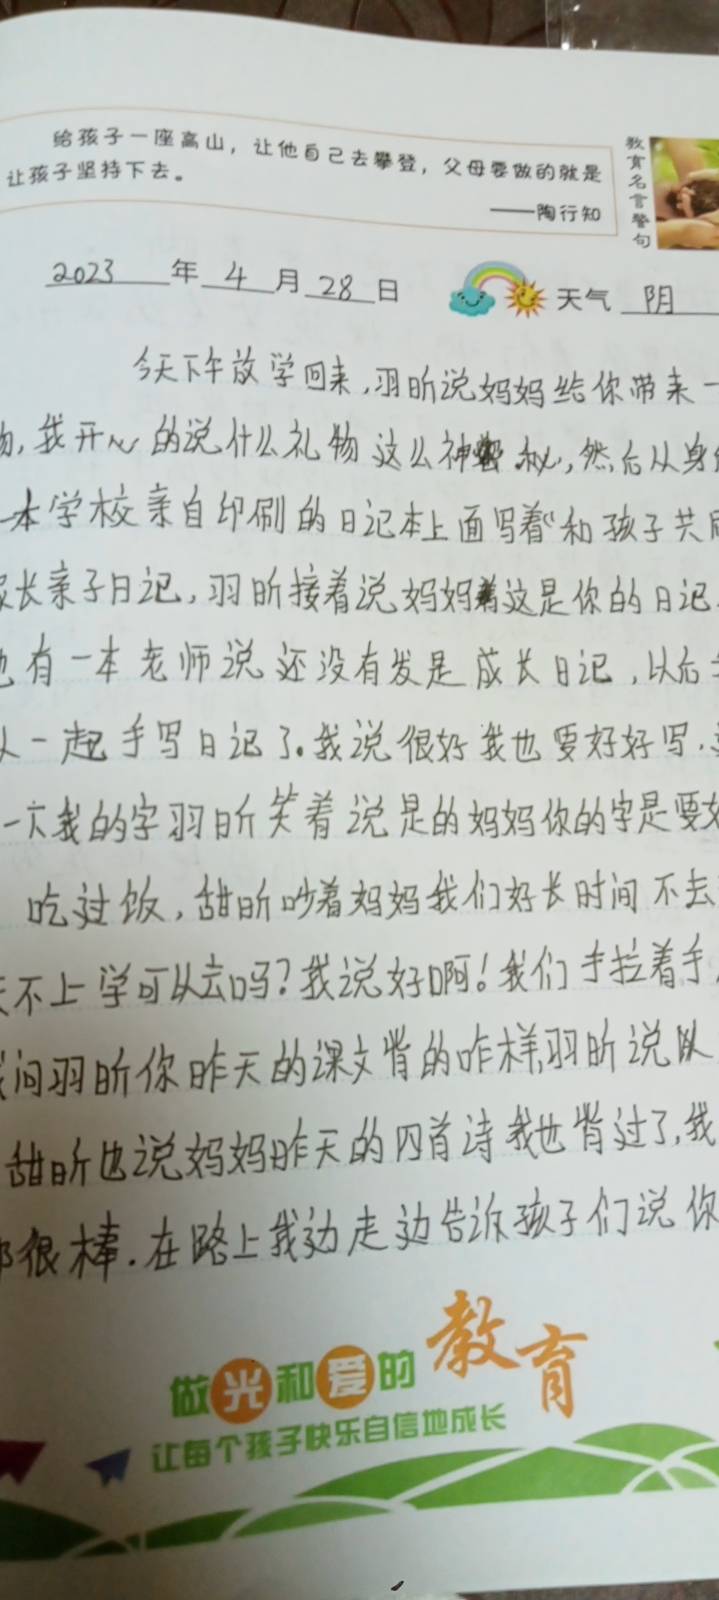 给孩子一座高山，让他自己去攀登，父母要做的就是
让孩子坚持下去。
——陶行知
教育名言警句
2023年4月28日 天气 阴
今天下午放学回来,羽昕说妈妈给你带来一
物,我开心的说什么礼物这么神秘,然后从身
一本学校亲自印刷的日记本上面写着“和孩子共
家长亲子日记,羽昕接着说妈妈这是你的日记
也有一本老师说还没有发是成长日记,以后
一起手写日记了。我说很好我也要好好写,
一下我的字羽昕笑着说是的妈妈你的字是要好
吃过饭,甜昕吵着妈妈我们好长时间不去
天不上学可以去吗?我说好啊!我们手拉着手,
我问羽昕你昨天的课文背的咋样,羽昕说
甜昕也说妈妈昨天的四首诗我也背过了,我
都很棒.在路上我边走边告诉孩子们说你
做光和爱的教育
让每个孩子快乐自信地成长